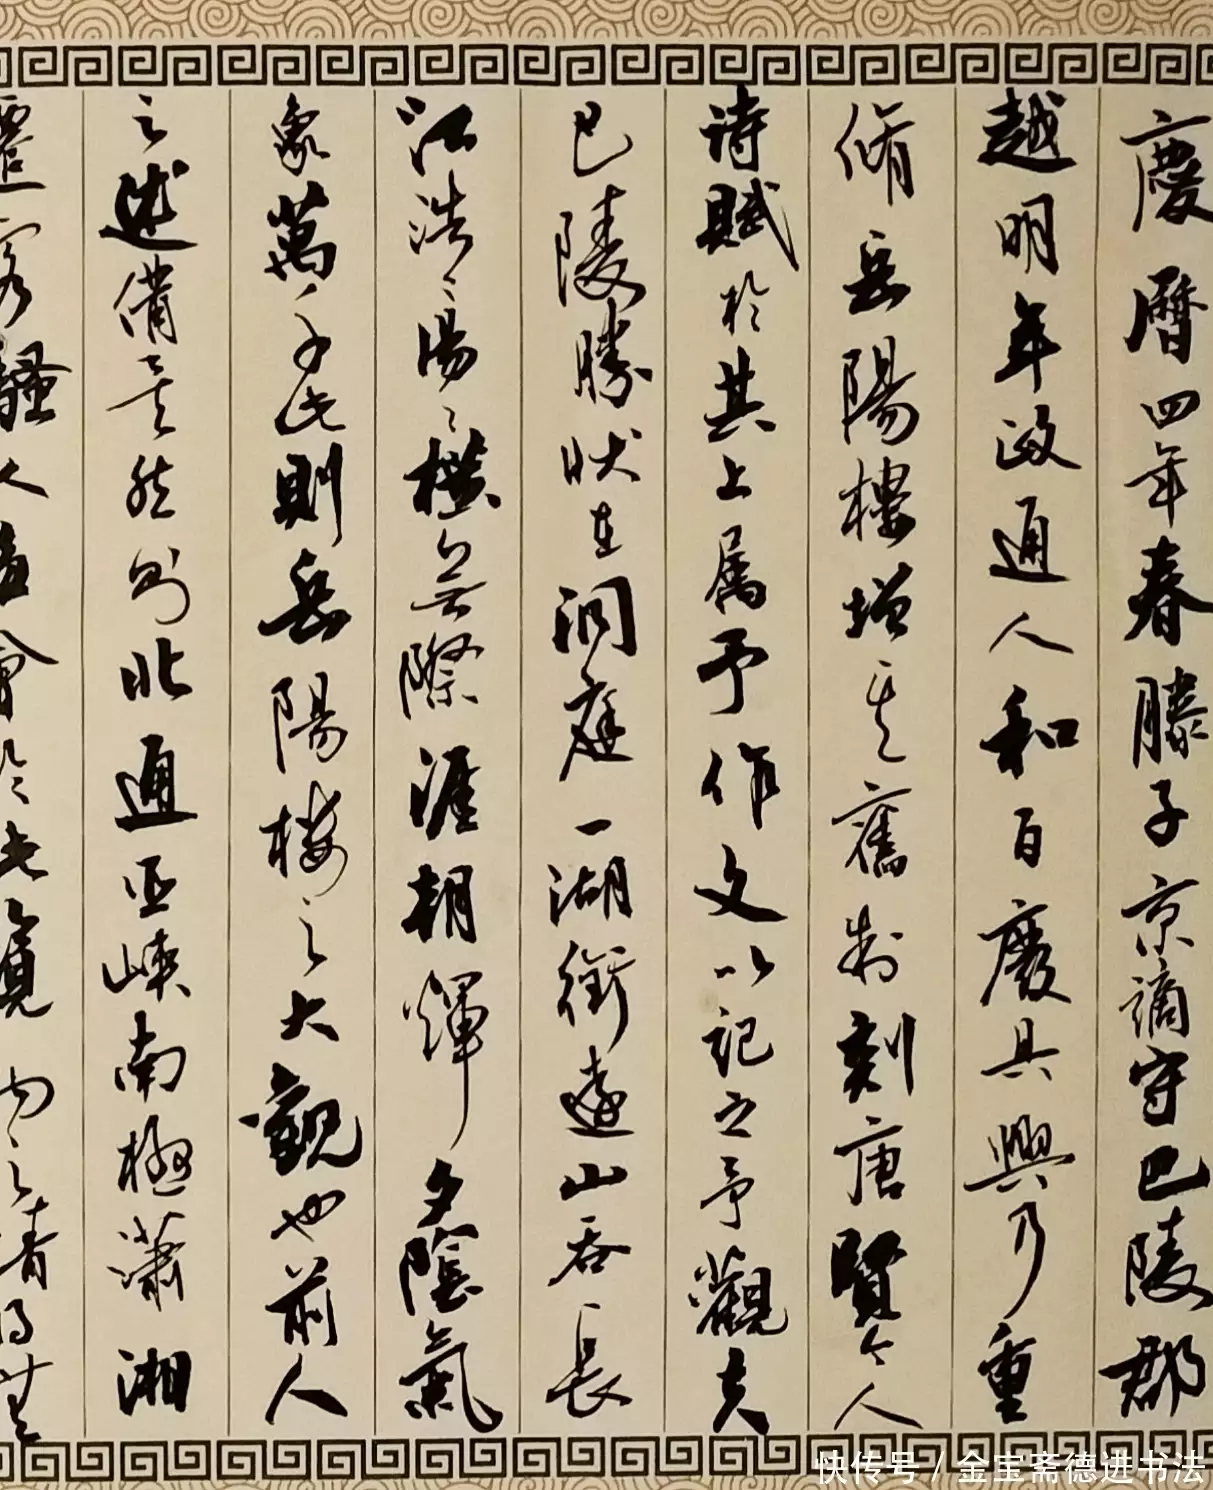 慶曆四年春滕子京謫守巴陵郡
越明年政通人和百廢具興乃重
脩岳陽樓增其舊制刻唐賢今人
詩賦於其上属予作文以記之予觀夫
巴陵勝狀在洞庭一湖銜遠山吞長
江浩〻湯〻橫無際涯朝輝夕陰氣
象萬千此則岳陽樓之大觀也前人
之述備矣然則北通巫峽南極瀟湘
遷客騷人多會於此覽物之情得無
快传号 / 金宝斋德进书法